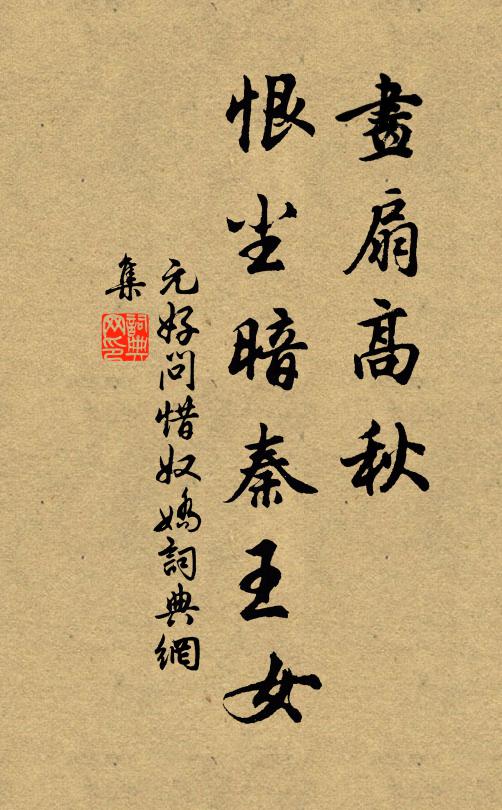 畫扇高秋
恨尘暗秦王女
元好问惜奴娇詞典網
集
詞典网印